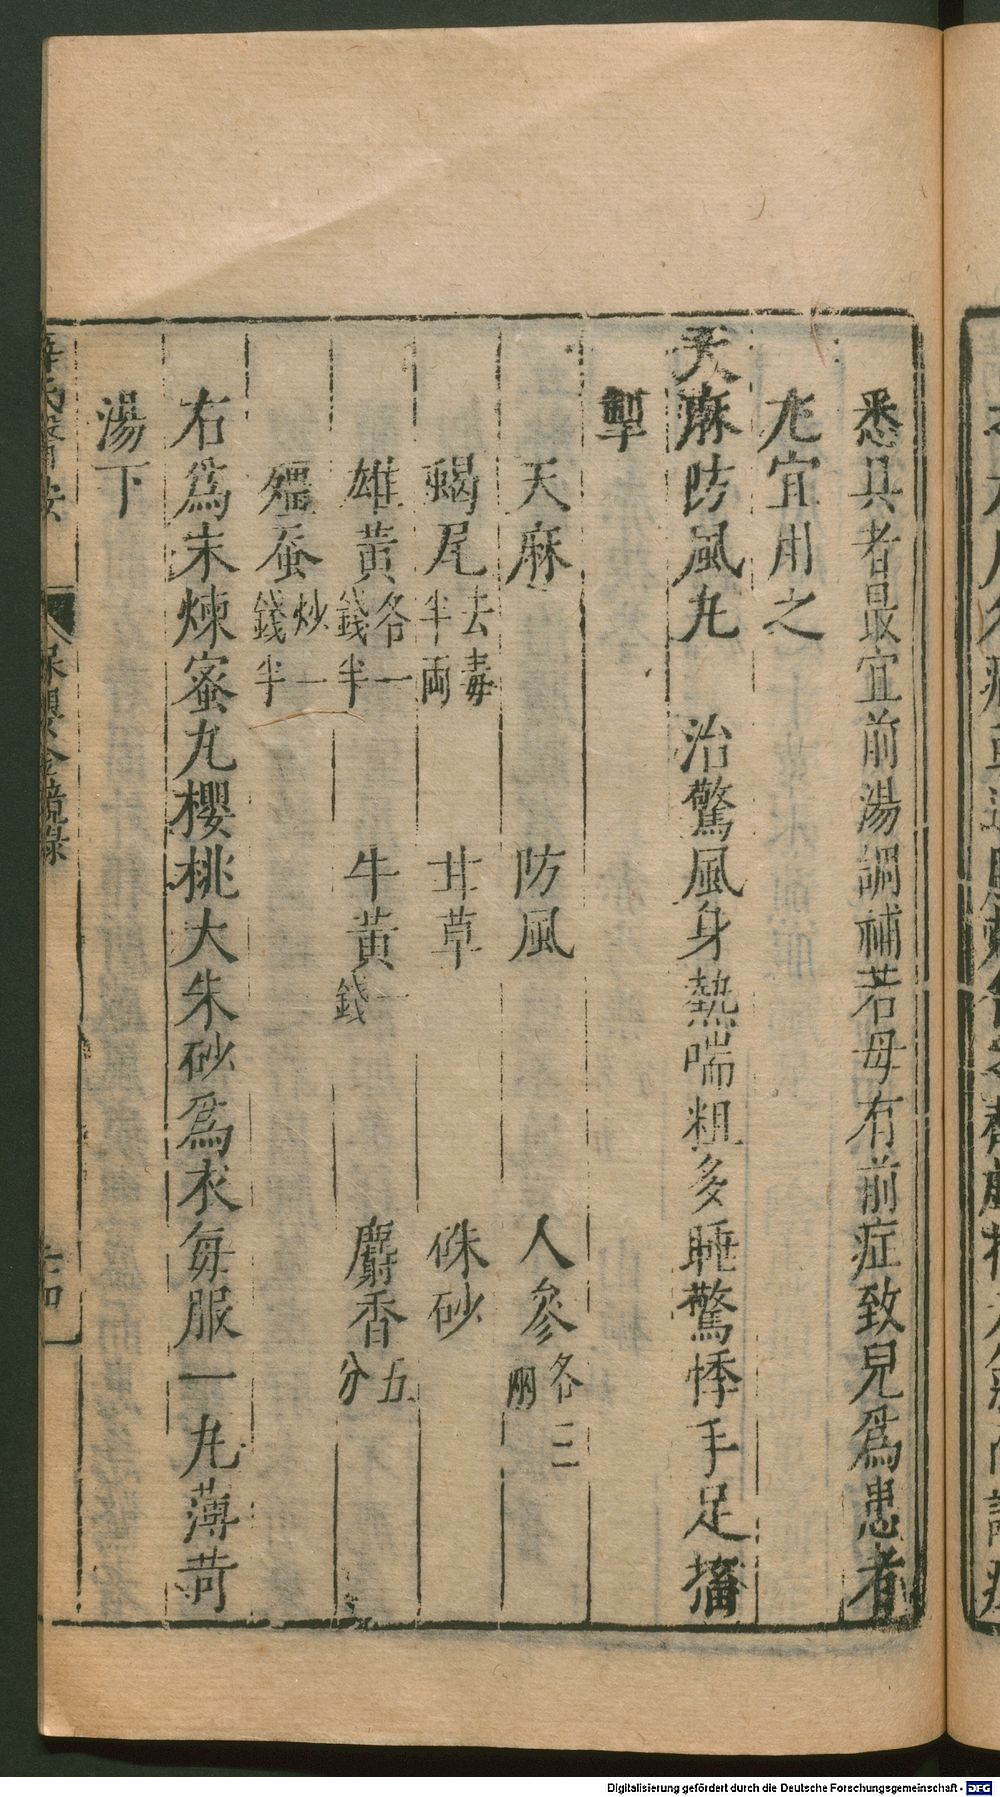 悉具者最宜前湯調補若母有前症致兒爲患者
尤宜用之
天麻防風丸　治驚風身熱喘粗多睡驚悸手足搐
掣
天麻　防風　人參各三兩
蝎尾去毒半兩　甘草　硃砂
雄黃各一錢半　牛黃一錢　麝香五分
殭蚕炒一錢半
右爲末煉蜜丸櫻桃大朱砂爲衣每服一丸薄苛
湯下
薛氏醫按　保嬰金鏡錄
Digitalisierung gefördert durch die Deutsche Forschungsgemeinschaft - DFG